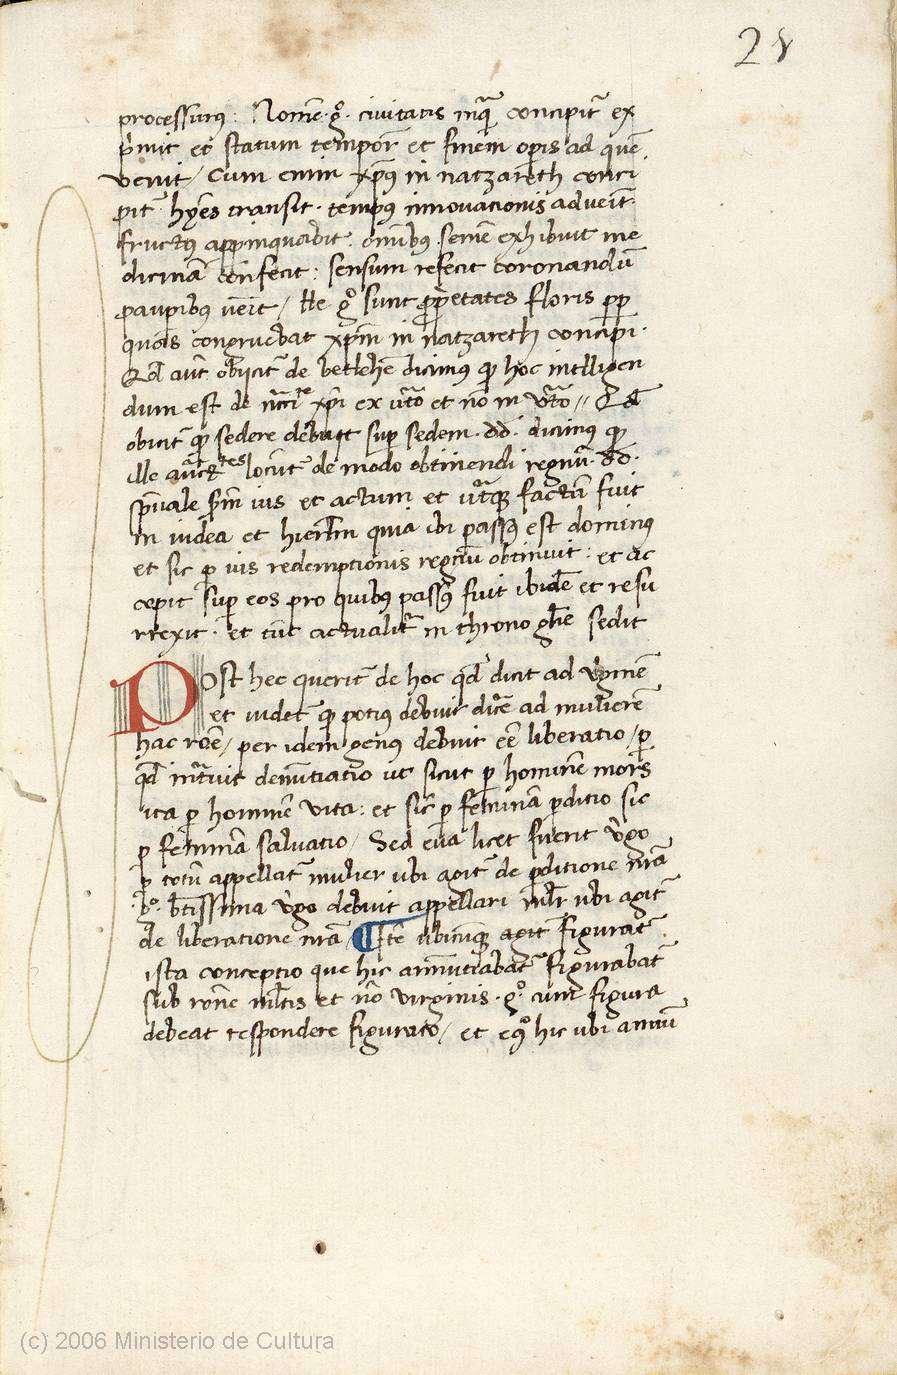 28
processurus : Nomē · g° · civitatis in q̄ concipit᷑ ex
p̄mit et statum tempor᷑ et finem op̄is ad quē
venit / Cum enim xp̄ꝰ in natzareth conci
pit᷑ hyēs transit · tempꝰ innovationis adveīt
fructꝰ appinquabit · oīnibꝰ semē exhibuit me
dicinā confecit : sensum refecit coronandū
paupibꝰ vēit / He g° sunt p̄petates floris pp
quas congruebat xp̄m in natzareth concipi ·
Qd̄ aūt obijcit᷑ de betlehē dicimꝰ ꝙ hoc intlligen
dum est de xp̄i ex ut°o et nō in ut°o // Qd̄
obicit᷑ ꝙ sedere debuit sup sedem · dd · dicimꝰ ꝙ
ille locūt᷑ de modo obtinendi regnū · dd ·
sp̄uale p̄m ius et actum et ut᷑qꝫ factā fuit
in iudea et hierl̄m quia ibi passꝰ est dominꝰ
et sic ꝑ vis redemptionis regnū obtinuit : et ac
cepit sup eos pro quibꝰ passꝰ fuit ibidē et resu
rrexit · et tūc actualit᷑ in throno gl̄ie sedit
Post hec querit᷑ de hoc qd̄ dicit ad v̄ginē
et videt᷑ ꝙ potius debuit dic̄e ad mulierē
hac roē / per idem genꝰ debuit eē liberatio / ꝑ
qd̄ int᷑uit denūtiatio ut sicut ꝑ hominē mors
ita ꝑ hominē vita : et sic ꝑ feminā ꝑditio sic
ꝑ feminā salvatio / Sed eva licet fuerit v̄go
ꝑ totū appellat᷑ mulier ubi agit᷑ de ꝑditione nr̄a
g° · bt̄issima v̄go debuit appellari ml̄r ubi agit᷑
de liberatione nr̄a / ¶ Itē ubicūqꝫ agit᷑ figurat᷑
ista conceptio que hic annūtiabat᷑ figurabat᷑
sub rōne ml̄is et nō virginis · g° · cum figura
debeat respondere figurato / et eqꝰ hic ubi annū
(c) 2006 Ministerio de Cultura